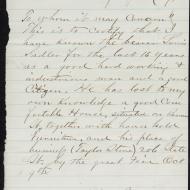 To whom it may Concern
This is to Certify that I
have known the bearer Louis
Sadler for the last 16 years
as a good hard working &
industrious man and a good
Citizen. He has lost to my
own knowledge a good Com-
fortable House, situated on
St, together with house hold
furniture, and his place of
business (Taylor Store) 206 State
St, by the great Fire Oct
9th